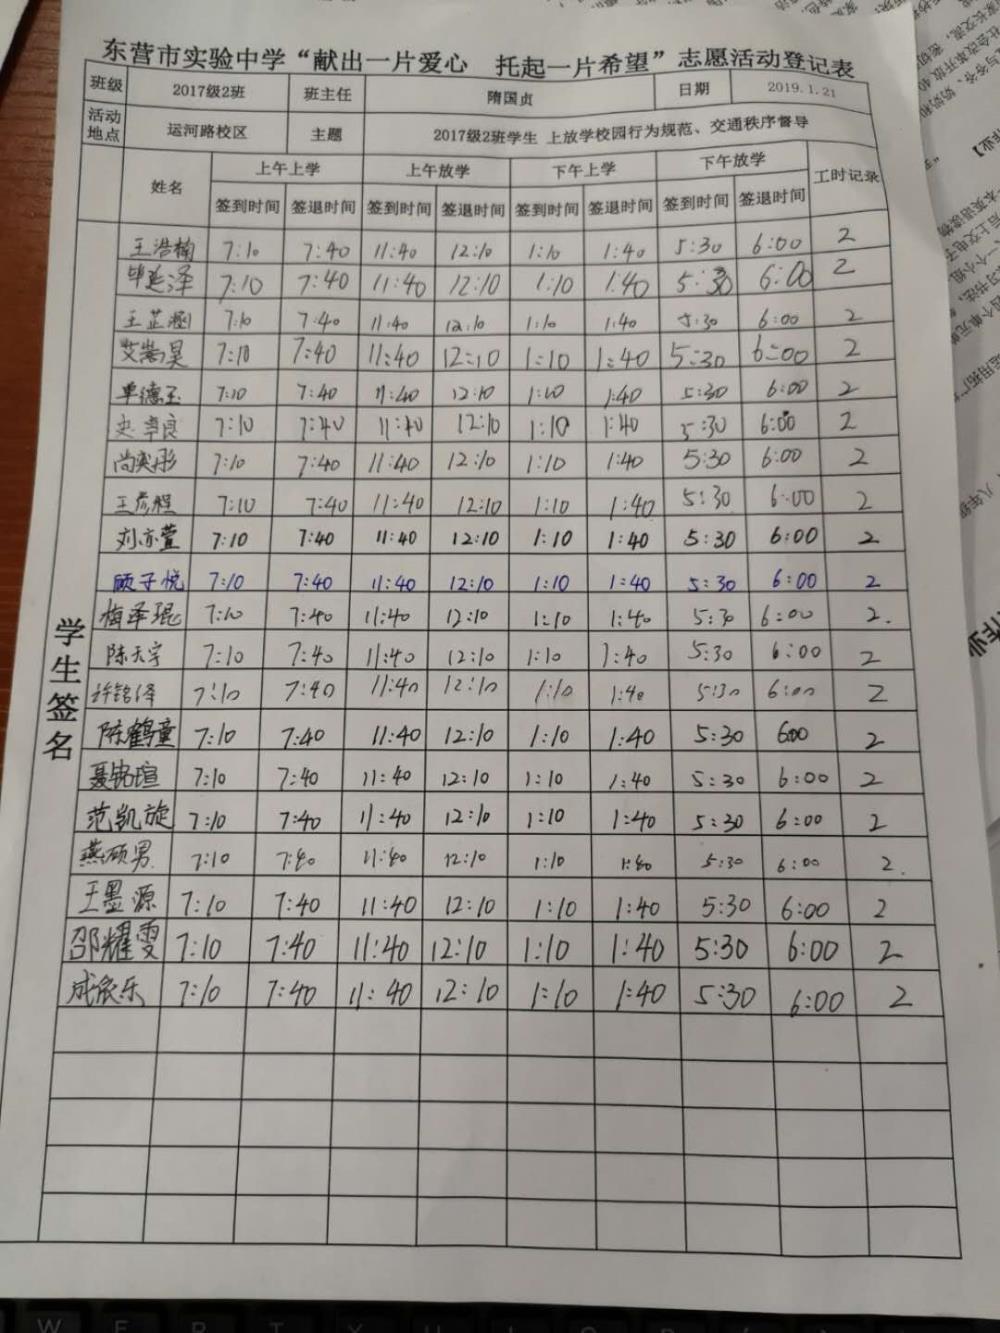 东营市实验中学“献出一片爱心 托起一片希望”志愿活动登记表
班级 2017级2班 班主任 隋国贞 日期 2019.1.21
活动地点 运河路校区 主题 2017级2班学生 上放学校园行为规范、交通秩序督导
姓名 上午上学 上午放学 下午上学 下午放学 工时记录
签到时间 签退时间 签到时间 签退时间 签到时间 签退时间 签到时间 签退时间
学生签名
王浩楠 7:10 7:40 11:40 12:10 1:10 1:40 5:30 6:00 2
毕延泽 7:10 7:40 11:40 12:10 1:10 1:40 5:30 6:00 2
王芷涵 7:10 7:40 11:40 12:10 1:10 1:40 5:30 6:00 2
艾嵩昊 7:10 7:40 11:40 12:10 1:10 1:40 5:30 6:00 2
单德玉 7:10 7:40 11:40 12:10 1:10 1:40 5:30 6:00 2
7:10 7:40 11:40 12:10 1:10 1:40 5:30 6:00 2
尚奕彤 7:10 7:40 11:40 12:10 1:10 1:40 5:30 6:00 2
王彦程 7:10 7:40 11:40 12:10 1:10 1:40 5:30 6:00 2
刘亦萱 7:10 7:40 11:40 12:10 1:10 1:40 5:30 6:00 2
顾子悦 7:10 7:40 11:40 12:10 1:10 1:40 5:30 6:00 2
梅泽琨 7:10 7:40 11:40 12:10 1:10 1:40 5:30 6:00 2.
陈天宇 7:10 7:40 11:40 12:10 1:10 1:40 5:30 6:00 2
许铭泽 7:10 7:40 11:40 12:10 1:10 1:40 5:30 6:00 2
陈鹤童 7:10 7:40 11:40 12:10 1:10 1:40 5:30 6:00 2
聂铭瑄 7:10 7:40 11:40 12:10 1:10 1:40 5:30 6:00 2
范凯旋 7:10 7:40 11:40 12:10 1:10 1:40 5:30 6:00 2
燕硕男 7:10 7:40 11:40 12:10 1:10 1:40 5:30 6:00 2.
王墨源 7:10 7:40 11:40 12:10 1:10 1:40 5:30 6:00 2
邵耀雯 7:10 7:40 11:40 12:10 1:10 1:40 5:30 6:00 2
成依乐 7:10 7:40 11:40 12:10 1:10 1:40 5:30 6:00 2